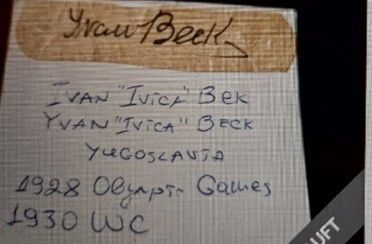 Yvan Beck
IVAN "IVICA" BEK
YVAN "IVICA" BECK
YUGOSLAVIA
1928 Olympic Games
1930 WC
UFT